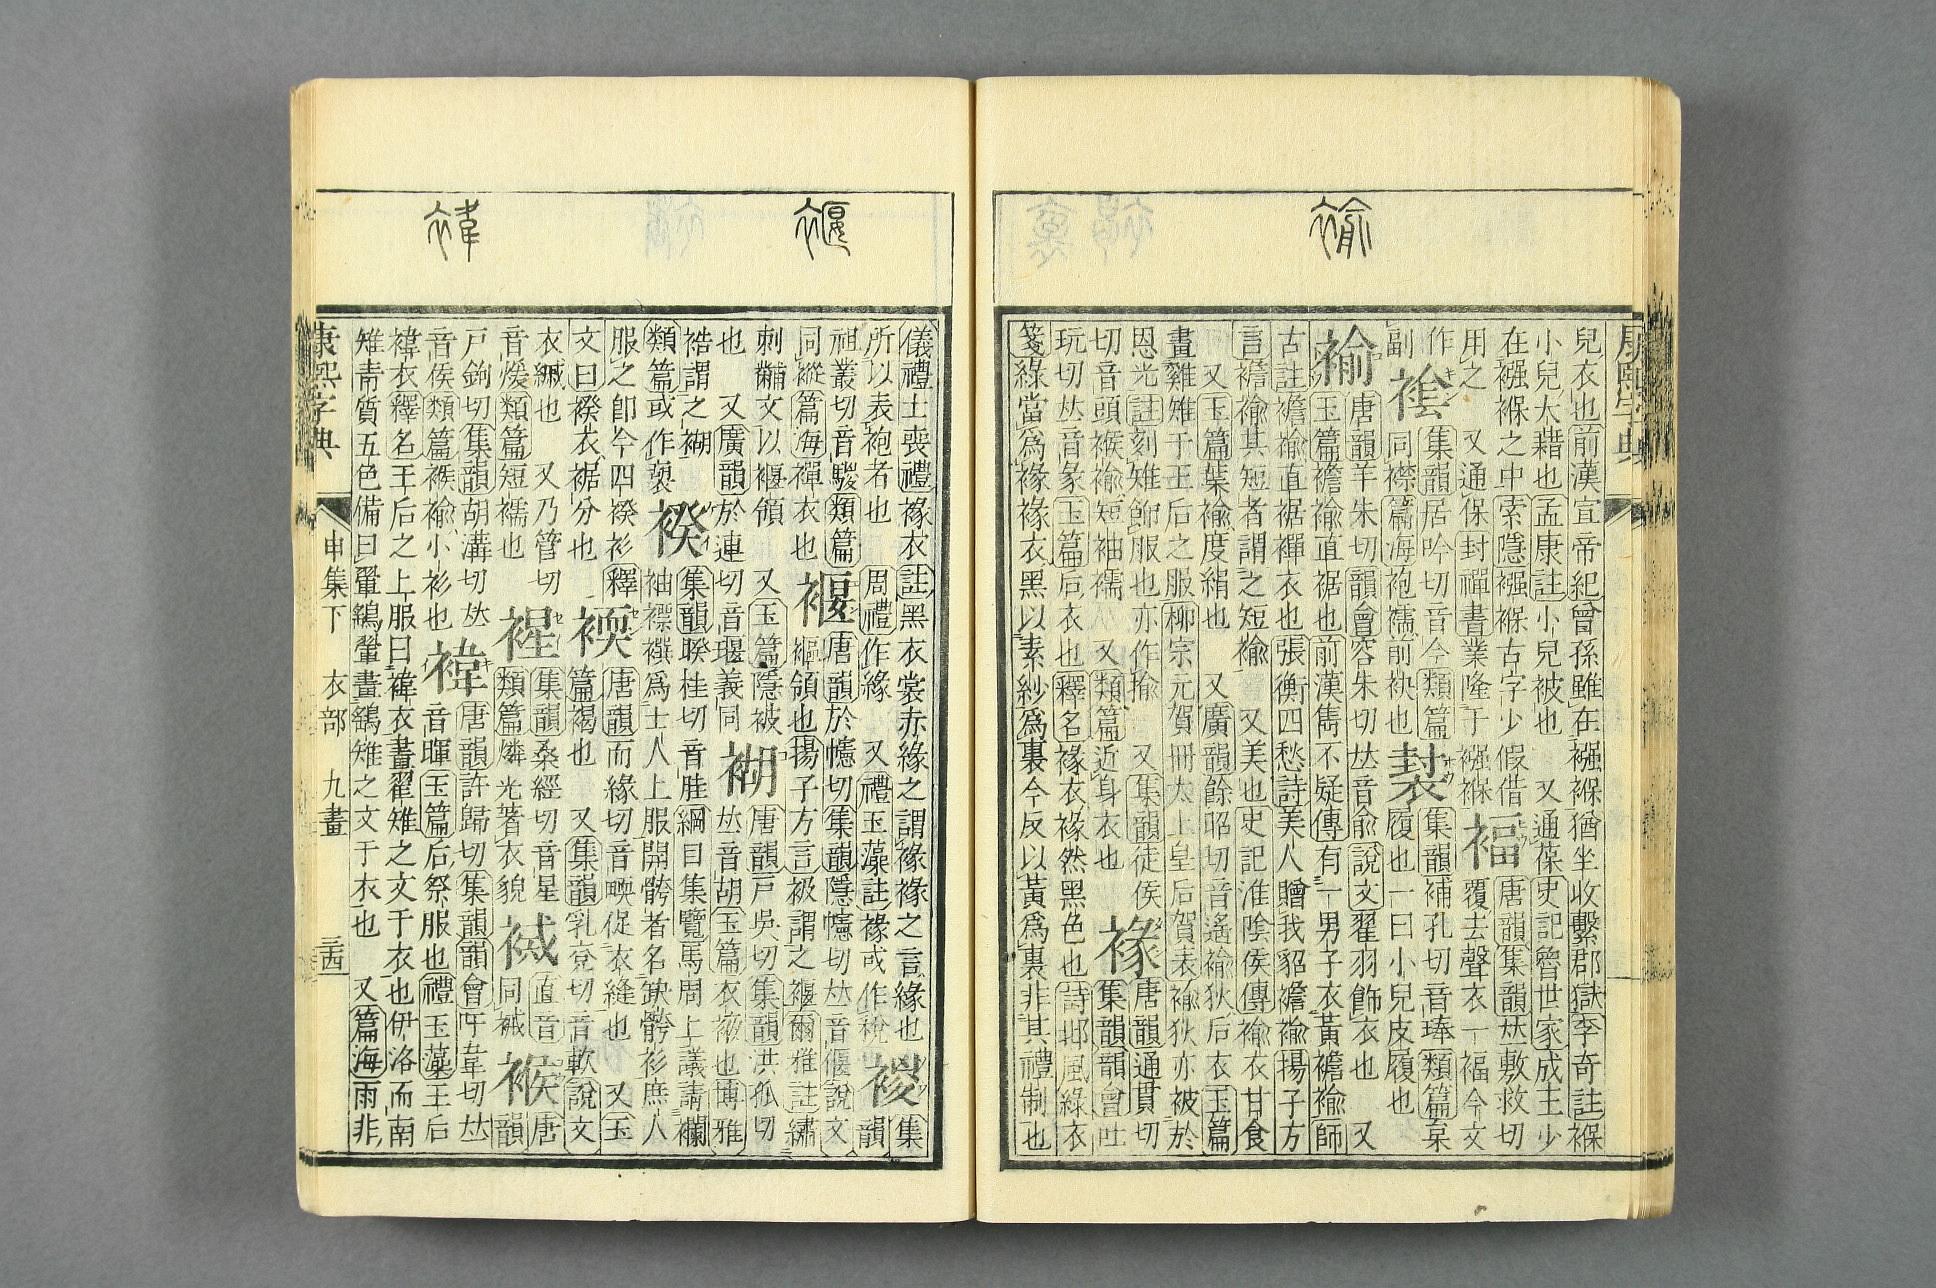 康熙字典
褕
兒衣也前漢宣帝紀曾孫雖在襁褓猶坐收繫郡獄李奇註褓
小兒大藉也孟康註小兒被也　又通葆史記魯世家成王少
在襁褓之中索隱襁褓古字少假借　褔　唐韻集韻𠀤敷救切
用之　又通保封禪書業隆于襁褓　覆去聲衣一褔今文
作　裣　集韻居吟切音今類篇　集韻補孔切音琫類篇枲
副　同襟篇海袍襦前袂也　履也一曰小兒皮履也
褕　唐韻羊朱切韻會容朱切𠀤音俞說文翟羽飾衣也　又
玉篇襜褕直裾也前漢雋不疑傳有一男子衣黃襜褕師
古註襜褕直裾襌衣也張衡四愁詩美人贈我貂襜褕揚子方
言襜褕其短者謂之短褕　又美也史記淮陰侯傳褕衣甘食
又玉篇葉褕度絹也　又廣韻餘昭切音遙褕狄后衣玉篇
畫雞雉于王后之服柳宗元賀冊太上皇后賀表褕狄亦被於
恩光註刻雉飾服也亦作揄　又集韻徒侯　褖　唐韻通貫切
切音頭䙈褕短袖襦　又類篇近身衣也　集韻韻會吐
玩切𠀤音彖玉篇后衣也釋名褖衣褖然黑色也詩邶風綠衣
箋綠當爲褖褖衣黑以素紗爲裏今反以黃爲裏非其禮制也
褗
褘
儀禮士喪禮褖衣註黑衣裳赤緣之謂褖褖之言緣也　集
所以表袍者也　周禮作緣　又禮玉藻註褖或作稅　韻
祖叢切音騣類篇　褗　唐韻於幰切集韻隱幰切𠀤音偃說文
同　篇海襌衣也　䙔領也揚子方言衱謂之褗爾雅註繡
刺黼文以褗領　又玉篇隱被　唐韻戸吳切集韻洪孤切
也　又廣韻於連切音　義同　𠀤音胡玉篇衣　也博雅
祰謂之　集韻睽桂切音　綱目集覽馬周上議請襴
類篇或作裦　䙆　袖褾襈爲士人上服開骻者名缺骻衫庶人
服之卽今四䙆衫　釋　唐韻而緣切音　促衣縫也　又玉
文曰䙆衣裾分也　篇褐也　又集韻乳兖切音軟說文
衣縅也　又乃管切　集韻桑經切音星　唐
音煖類篇短襦也　類篇燐光著衣貌　同　䙈　韻
戸鉤切集韻胡溝切𠀤　唐韻許歸切集韻韻會吁韋切𠀤
音侯類篇䙈褕小衫也　褘　音暉玉篇后祭服也禮玉藻王后
褘衣釋名王后之上服曰褘衣畫翟雉之文于衣也伊洛而南
雉靑質五色備曰翬鷂翬畫鷂雉之文于衣也　又篇海雨非
康熙字典　申集下　衣部　九畫　三四